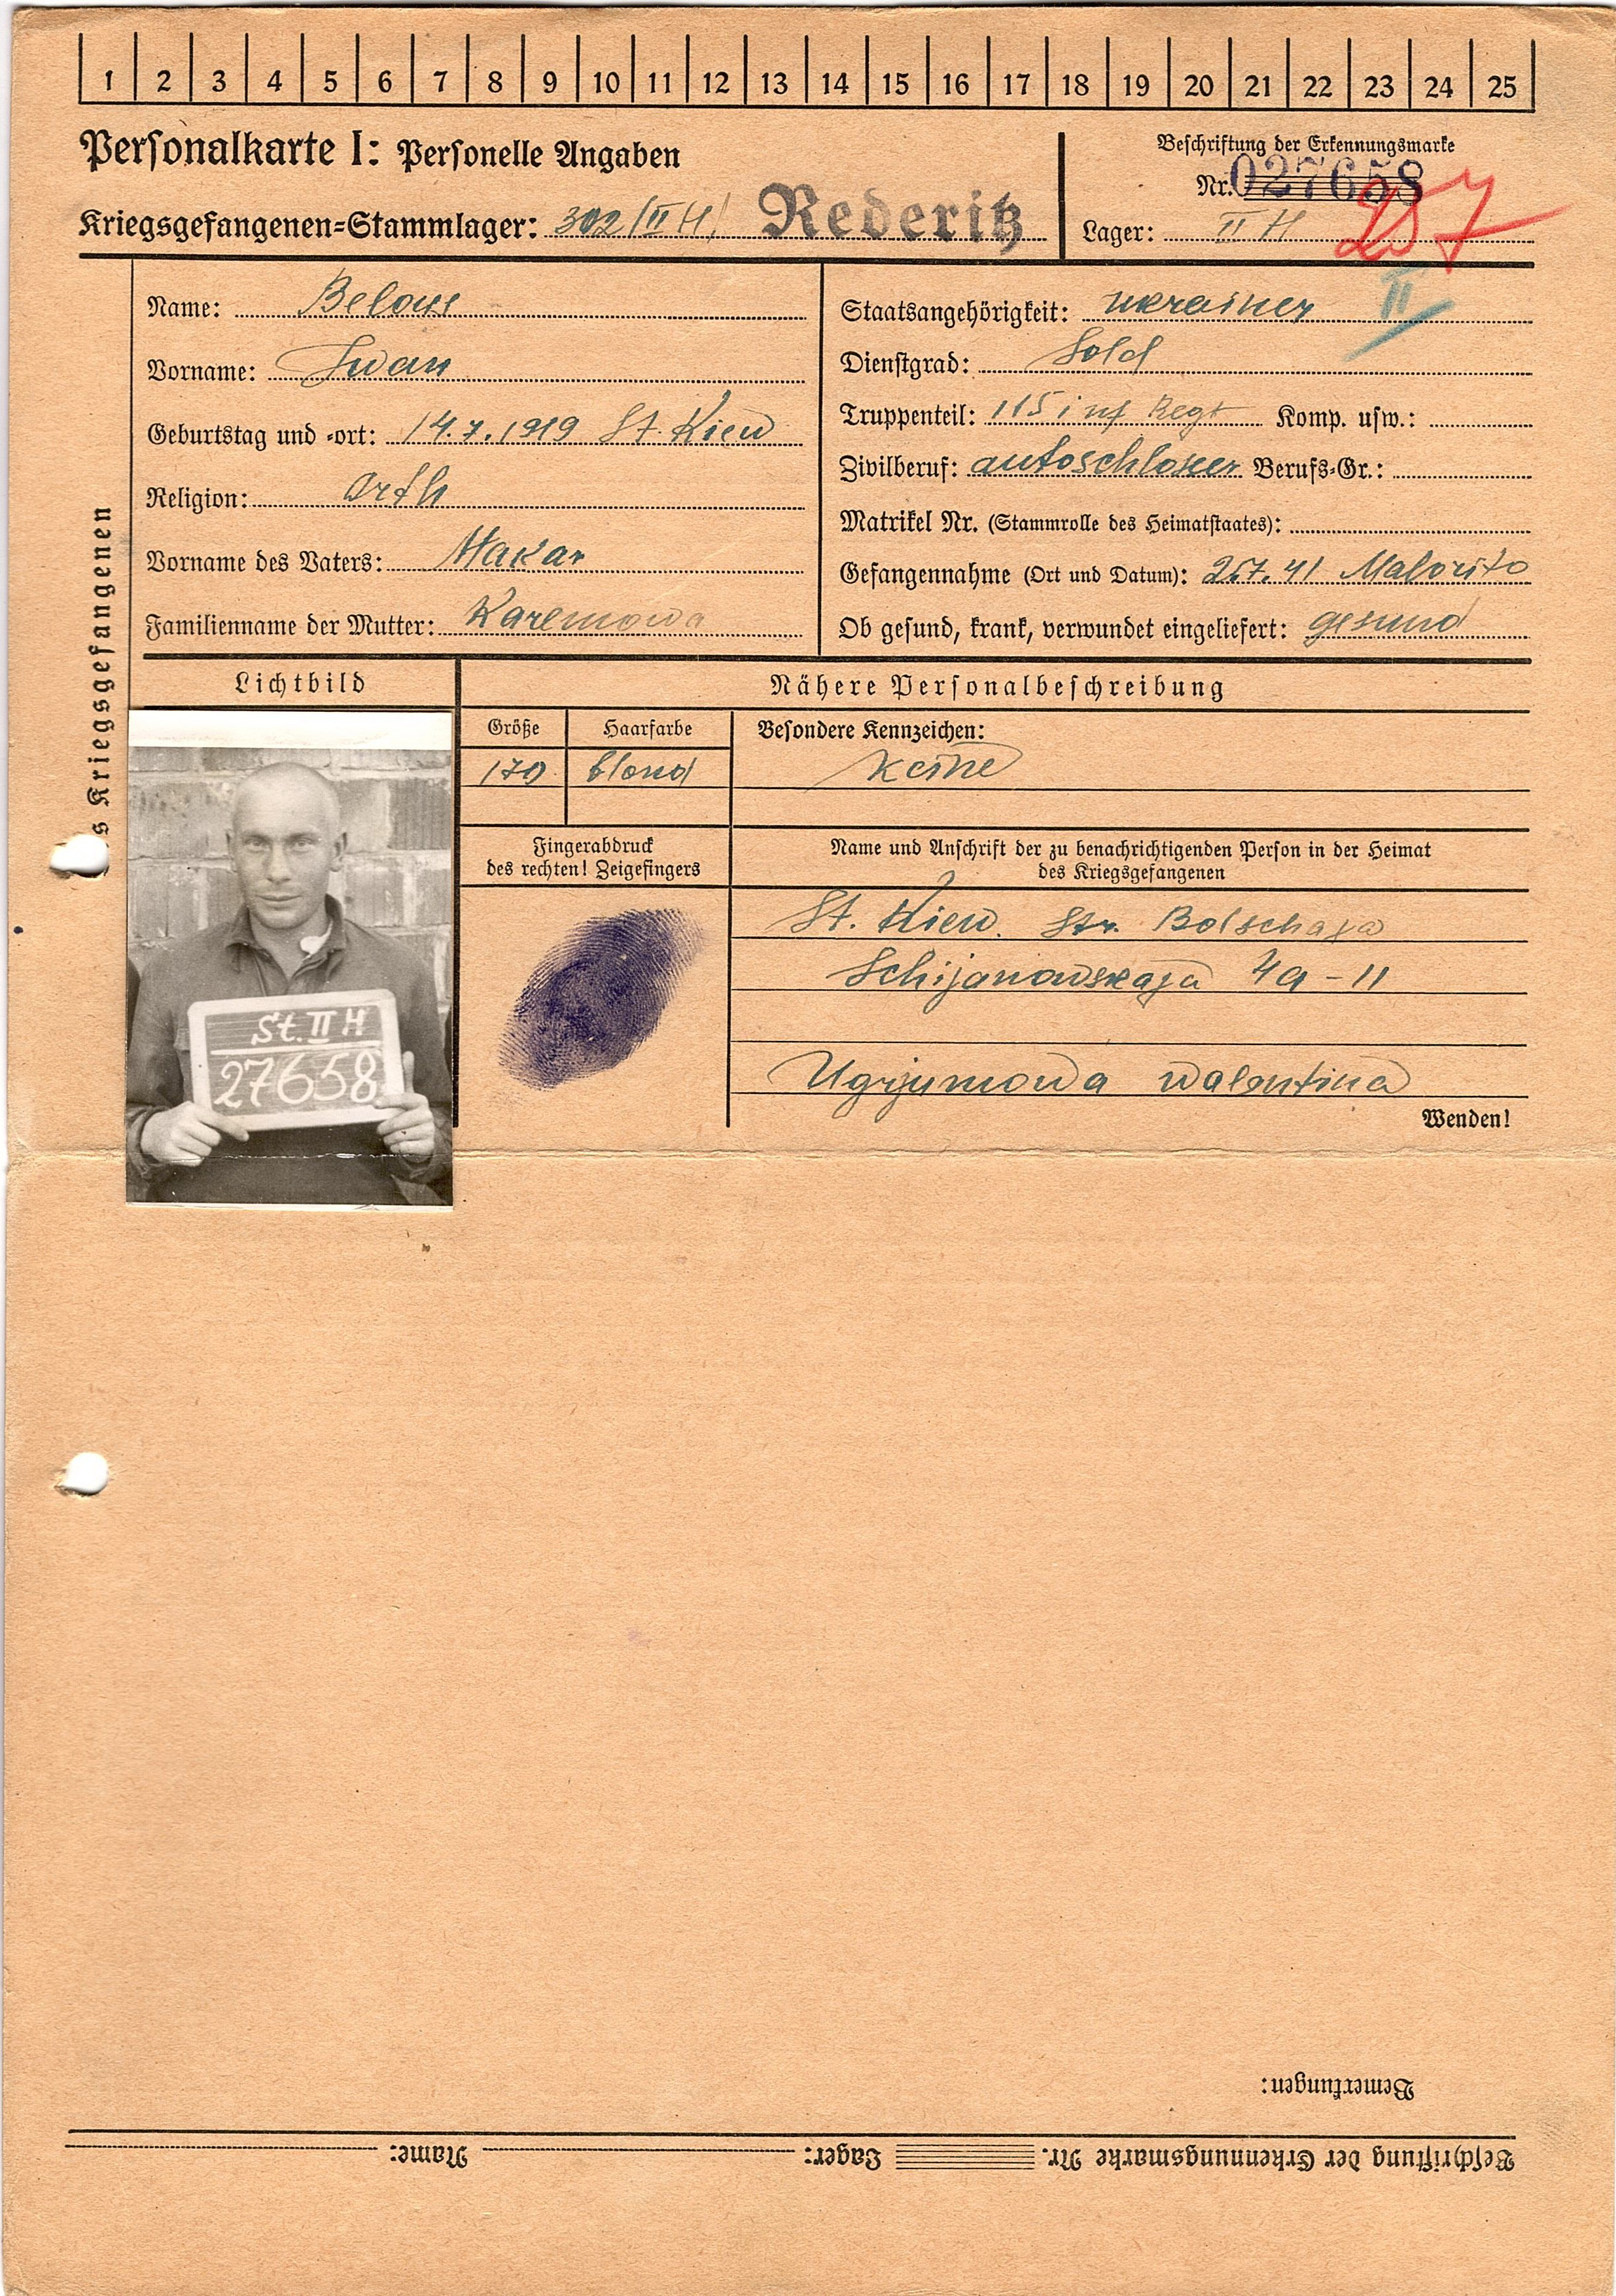 1 2 3 4 5 6 7 8 9 10 11 12 13 14 15 16 17 18 19 20 21 22 23 24 25
Personalkarte I: Personelle Angaben
Kriegsgefangenen-Stammlager: 302/II H/ Rederitz
Beschriftung der Erkennungsmarke
Nr. 027658
Lager: II H
257
II
Name: Belous
Vorname: Iwan
Geburtstag und -ort: 14.7.1919 St. Kiew
Religion: Orth
Vorname des Vaters: Makar
Familienname der Mutter: Karemowa
Staatsangehörigkeit: ukrainer
Dienstgrad: Sold
Truppenteil: 115 inf Regt Komp. usw.:
Zivilberuf: autoschlosser Berufs-Gr.:
Matrikel Nr. (Stammrolle des Heimatstaates):
Gefangennahme (Ort und Datum): 25.7.41 Malorito
Ob gesund, krank, verwundet eingeliefert: gesund
s Kriegsgefangenen
Lichtbild
Nähere Personalbeschreibung
Größe Haarfarbe Besondere Kennzeichen:
170 blond keine
Fingerabdruck
des rechten! Zeigefingers
Name und Anschrift der zu benachrichtigenden Person in der Heimat
des Kriegsgefangenen
St. Kiew. Str. Bolschaja
Schijanowskaja 4a-11
Ugrjumowa Walentina
Wenden!
St. II H
27658
Bemerkungen:
Beschriftung der Erkennungsmarke Nr. Lager: Name: